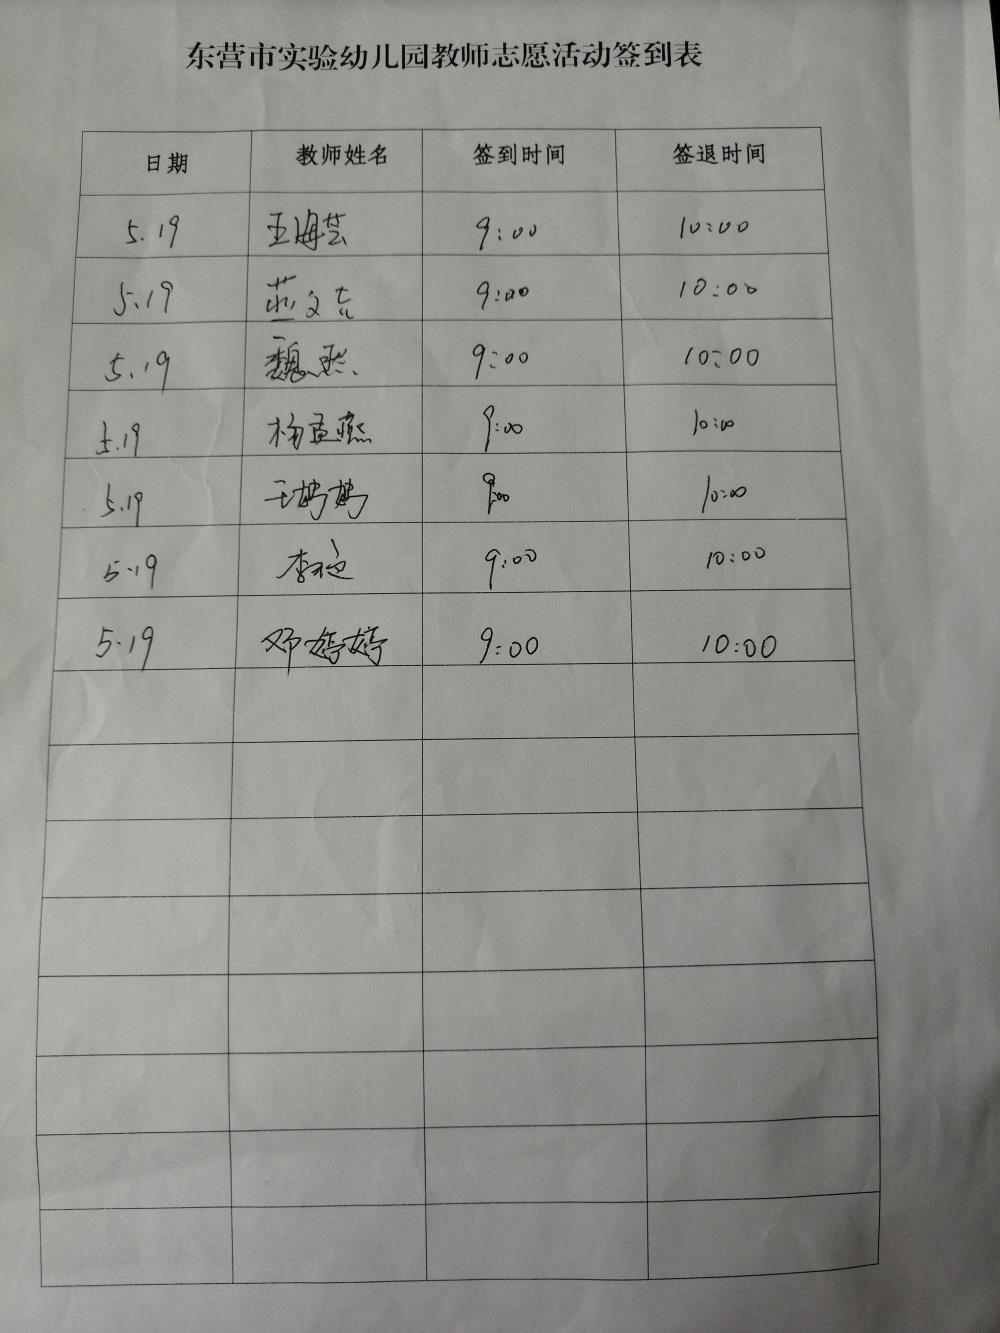 东营市实验幼儿园教师志愿活动签到表
日期 教师姓名 签到时间 签退时间
5.19 王海芸 9:00 10:00
5.19 燕文吉 9:00 10:00
5.19 魏 9:00 10:00
5.19 杨孟燕 9:00 10:00
5.19 王娉娉 9:00 10:00
5.19 李 9:00 10:00
5.19 邓婷婷 9:00 10:00